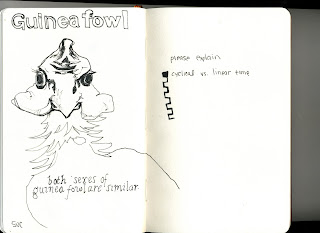 Guineafowl
both sexes of
guinea fowl are similar
please explain
cyclical vs. linear time